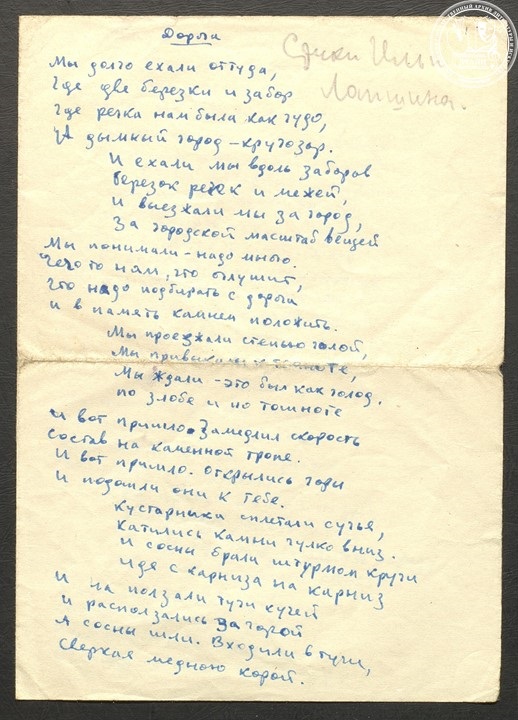 Дорога
Стихи Ильи
Лапшина.
Мы долго ехали оттуда,
Где две березки и забор
Где речка нам была как чудо,
А дымный город – кругозор.
И ехали мы вдоль заборов
березок речек и межей,
и выезжали мы за город,
За городской масштаб вещей
Мы понимали – надо много.
чего то нам, что оглушит,
что надо подбирать с дороги
и в память камнем положить.
Мы проезжали степью голой,
Мы привыкали к
Мы ждали – это был как голод.
по злобе и по тошноте
И вот пришло. Замедлил скорость
состав на каменной тропе.
И вот пришло. открылись горы
И подошли они к тебе.
Кустарники сплетали сучья,
Катились камни гулко вниз.
И сосны брали штурмом кручи
идя с карниза на карниз
И на ползали тучи кучей
и расползались за горой
А сосны шли. Входили в тучи,
сверкая медною корой.